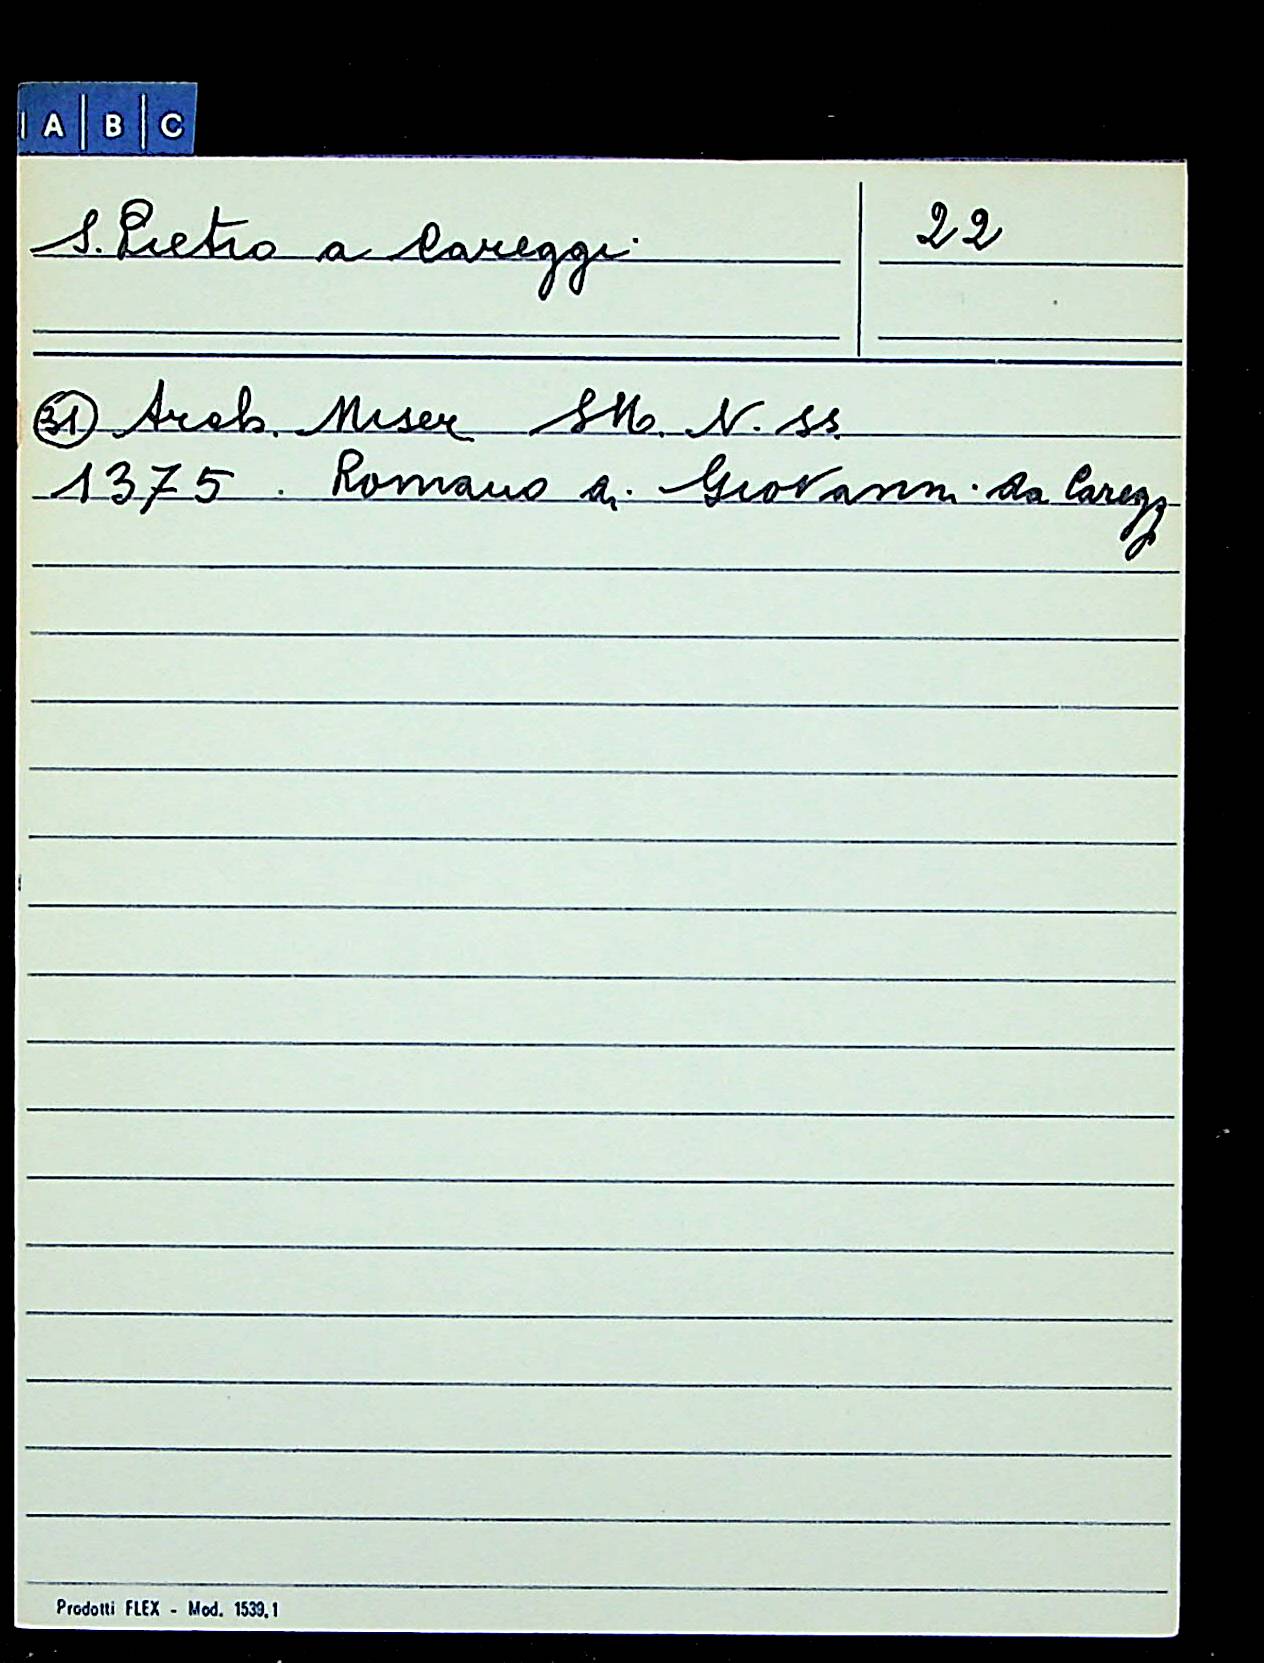 A B C
S. Pietro a Careggi
22
31 Arch. Miser SM. N. ss.
1375. Romano di Giovanni da Caregg
Prodotti FLEX - Mod. 1539.1